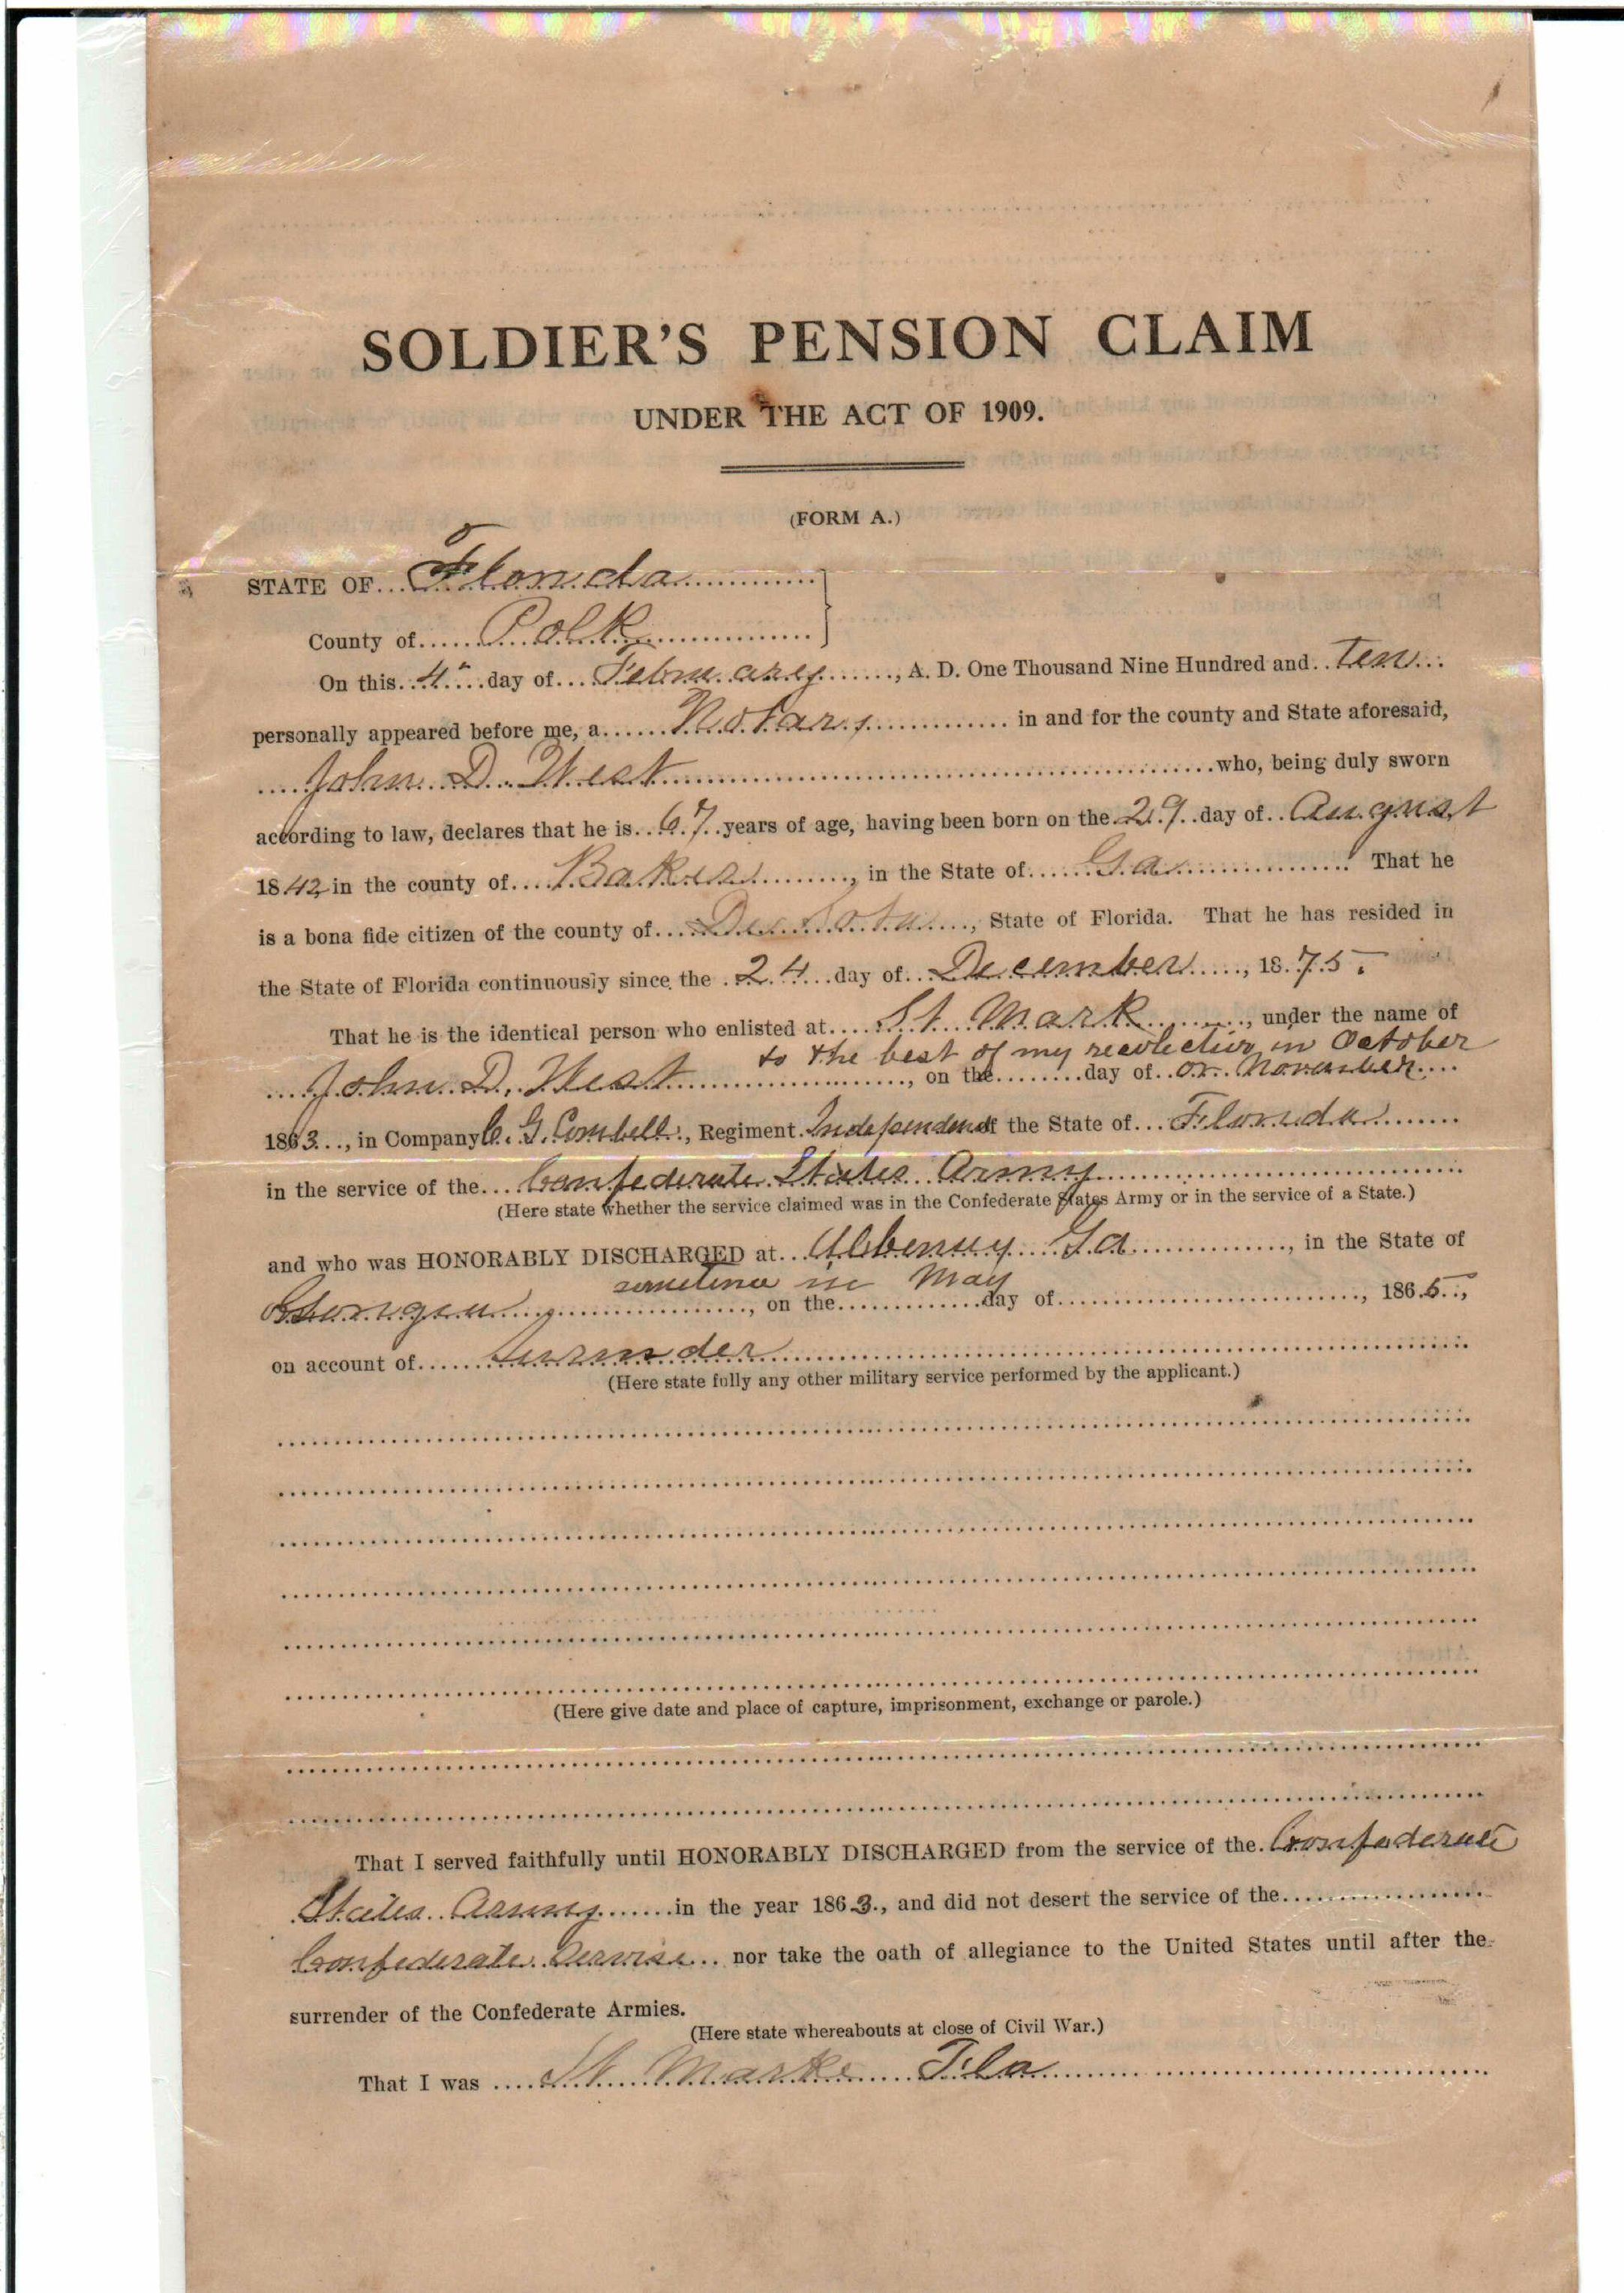 SOLDIER'S PENSION CLAIM
UNDER THE ACT OF 1909.
(FORM A.)
STATE OF Florida
County of Polk
On this 4" day of February, A. D. One Thousand Nine Hundred and Ten
personally appeared before me, a Notary in and for the county and State aforesaid,
John D. West who, being duly sworn
according to law, declares that he is 67 years of age, having been born on the 29 day of August
1842, in the county of Baker, in the State of Ga. That he
is a bona fide citizen of the county of De Soto, State of Florida. That he has resided in
the State of Florida continuously since the 24 day of December, 1875.
That he is the identical person who enlisted at St Mark, under the name of
to the best of my recolection in October
John D. West, on the day of or November
1863, in Company C. G. , Regiment Independent the State of Florida
in the service of the Confederate States Army
(Here state whether the service claimed was in the Confederate States Army or in the service of a State.)
and who was HONORABLY DISCHARGED at Ga, in the State of
sometime in May
Georgia, on the day of, 1865,
on account of
(Here state fully any other military service performed by the applicant.)
(Here give date and place of capture, imprisonment, exchange or parole.)
That I served faithfully until HONORABLY DISCHARGED from the service of the Confederate
States Army in the year 1863, and did not desert the service of the
Confederate Servise nor take the oath of allegiance to the United States until after the
surrender of the Confederate Armies.
(Here state whereabouts at close of Civil War.)
That I was St Marks Fla